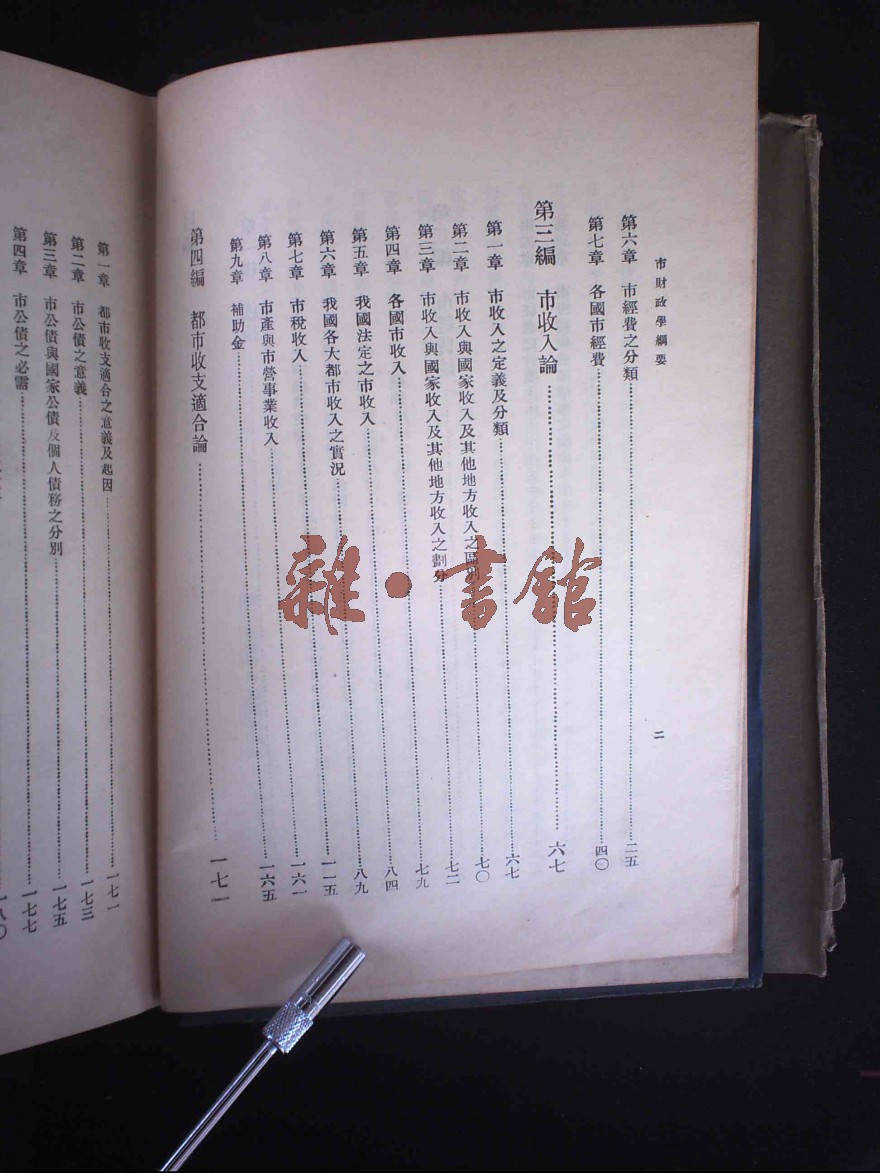 市財政學綱要
二
第六章 市經費之分類……二五
第七章 各國市經費……四〇
第三編 市收入論……六七
第一章 市收入之定義及分類……六七
第二章 市收入與國家收入及其他地方收入之區別……七〇
第三章 市收入與國家收入及其他地方收入之劃分……七二
第四章 各國市收入……七九
第五章 我國法定之市收入……八四
第六章 我國各大都市收入之實況……八九
第七章 市稅收入……一一五
第八章 市產與市營事業收入……一六一
第九章 補助金……一六五
第四編 都市收支適合論……一七一
第一章 都市收支適合之意義及起因……一七一
第二章 市公債之意義……一七三
第三章 市公債與國家公債及個人債務之分別……一七五
第四章 市公債之必需……一七七
一八〇
雜·書館